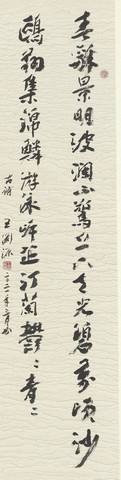 春龢景明波澜不驚上下天光一碧萬頃沙
鷗翔集錦鱗游泳岸芷汀蘭鬱〻青〻